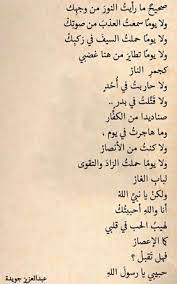 صحيحٌ ما رأيتُ النورَ من وجهِكَ
ولا يومًا سمعتُ العذبَ من صوتِكَ
ولا يومًا حملتُ السيفَ في ركبِكَ
ولا يومًا تطايرَ من هنا غضبي
كجمرِ النارْ
ولا حاربتُ في أُحُدٍ
ولا قتَّلتُ في بدرٍ ..
صناديدا من الكفَّارْ
وما هاجرتُ في يومٍ ،
ولا كنتُ من الأنصارْ
ولا يومًا حملتُ الزادَ والتقوى
لبابِ الغارْ
ولكنْ يا نبيَّ اللهْ
أنا واللهِ أحببتُكْ
لهيبُ الحبِ في قلبي
كما الإعصارْ
فهل تَقبلْ ؟
حبيبي يا رسولَ اللهِ
عبدالعزيز جويدة